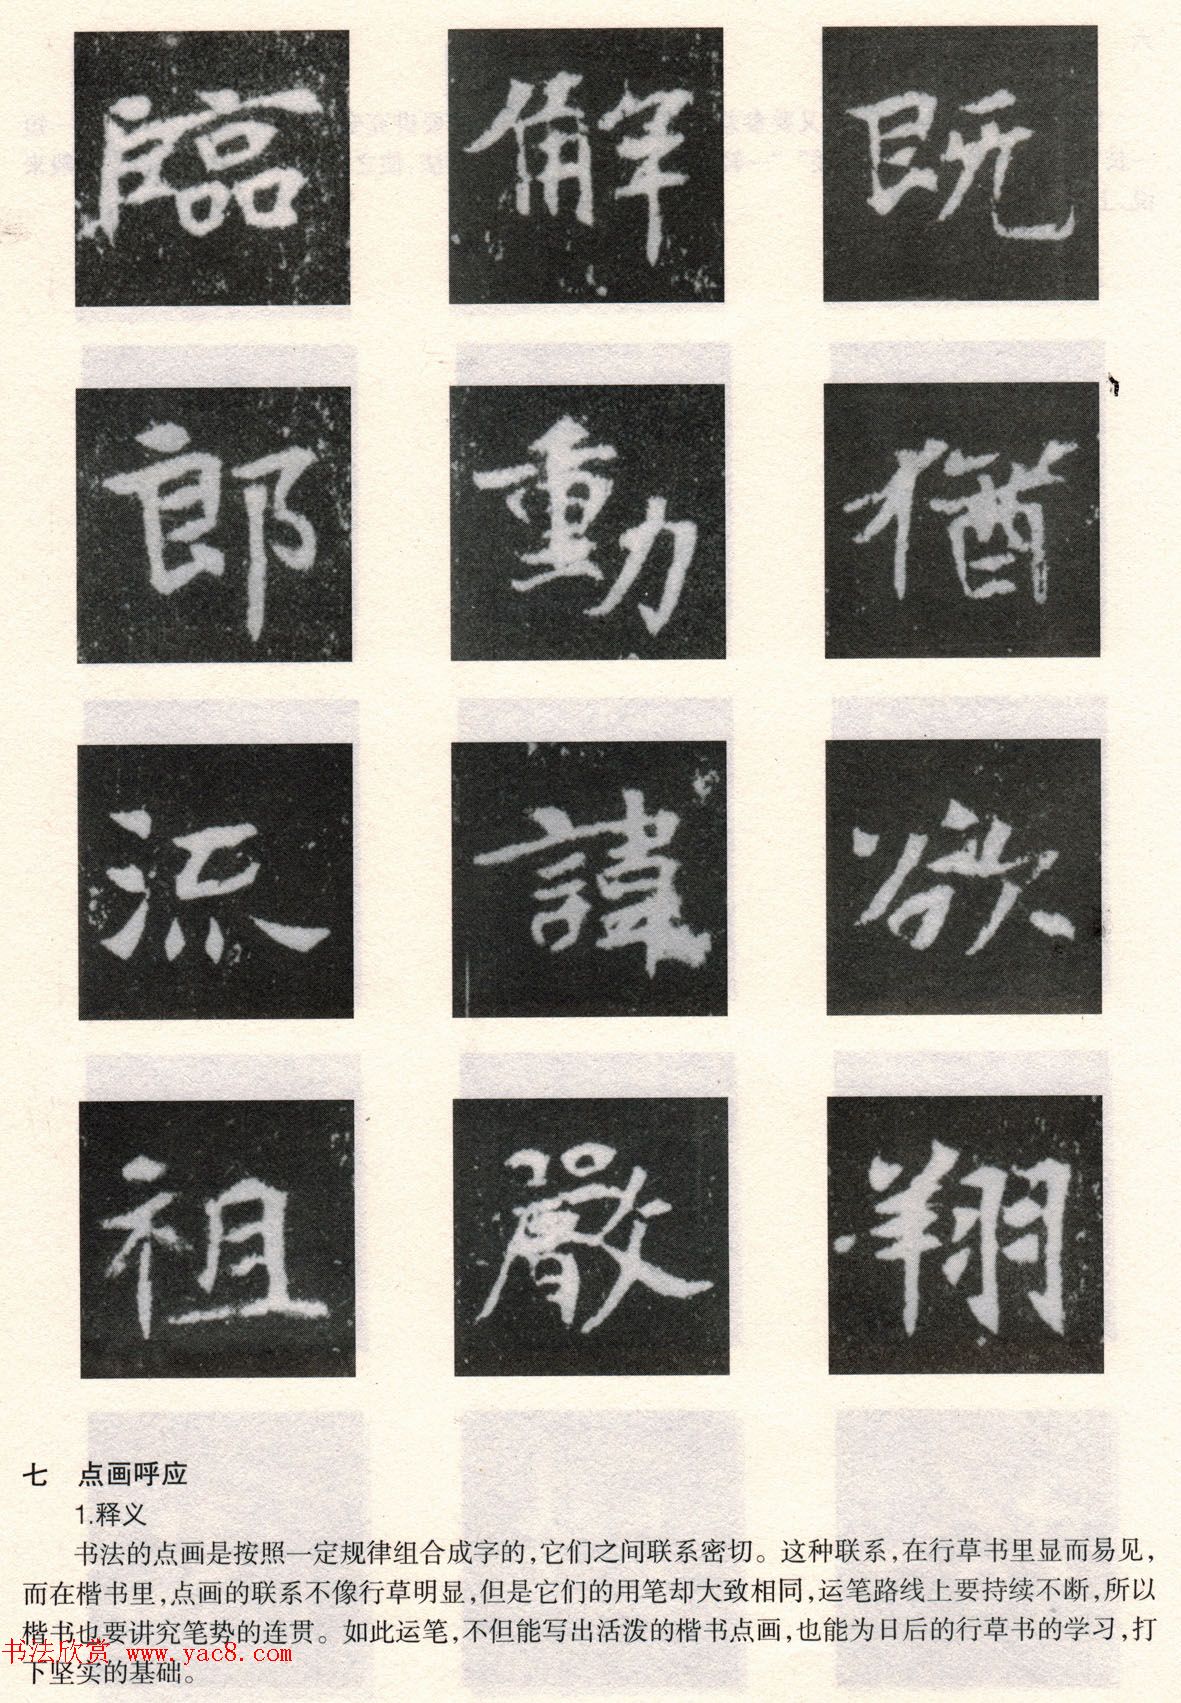 臨 解 既
郎 動 猶
流 諱 欲
祖 嚴 翔
七 点画呼应
1.释义
书法的点画是按照一定规律组合成字的，它们之间联系密切。这种联系，在行草书里显而易见，
而在楷书里，点画的联系不像行草明显，但是它们的用笔却大致相同，运笔路线上要持续不断，所以
楷书也要讲究笔势的连贯。如此运笔，不但能写出活泼的楷书点画，也能为日后的行草书的学习，打
下坚实的基础。
书法欣赏 www.yac8.com